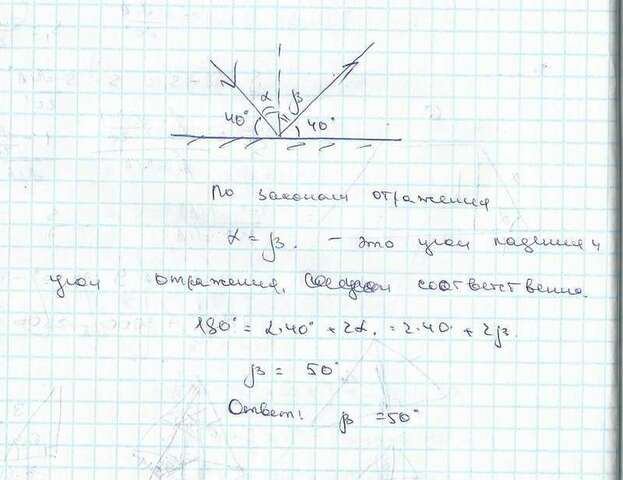 α β
40° 40°
По законам отражения
α = β. - это угол падения и
угол отражения, соответственно.
180° = 2·40° + 2α. = 2·40 + 2β.
β = 50°
Ответ: β = 50°